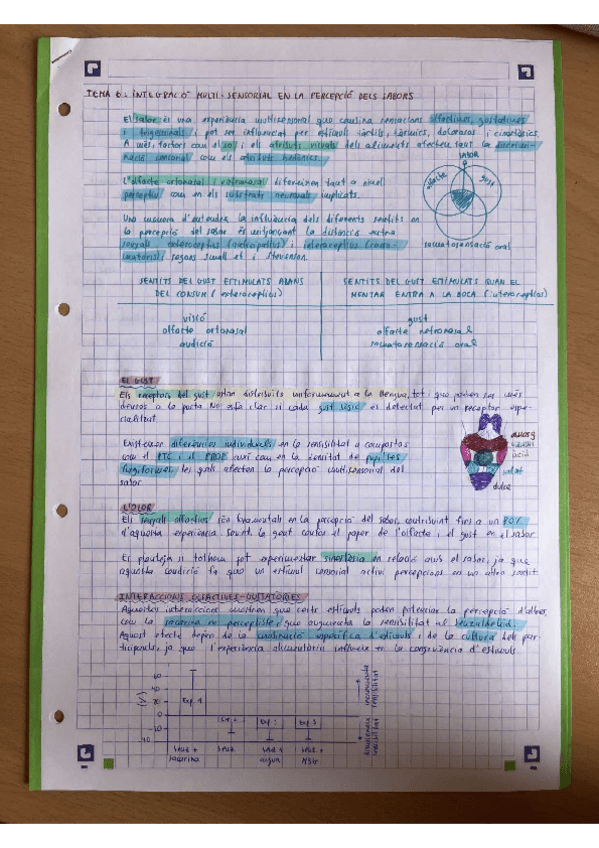 TEMA 6: INTEGRACIÓ MULTI-SENSORIAL EN LA PERCEPCIÓ DELS SABORS
El sabor és una experiència multisensorial que combina sensacions olfactives, gustatives
i trigeminals i pot ser influenciat per estímuls tàctils, tèrmics, dolorosos i cinestèsics.
A més, factors com el so i els atributs visuals dels aliments afecten tant la
sensorial com els atributs hedònics.
SABOR
olfacte
gust
somatosensació oral
L'olfacte ortonasal i retronasal difereixen tant a nivell
perceptiu com en els substrats neuronals implicats.
Una manera d'entendre la influència dels diferents sentits en
la percepció del sabor és mitjançant la distinció entre
senyals exteroceptius (anticipatius) i interoceptius
segons Small et i Stevenson.
SENTITS DEL GUST ESTIMULATS ABANS
DEL CONSUM (exteroceptius)
SENTITS DEL GUST ESTIMULATS QUAN EL
MENJAR ENTRA A LA BOCA (interoceptius)
visió
olfacte ortonasal
audició
gust
olfacte retronasal
somatosensació oral
EL GUST
Els receptors del gust estan distribuïts uniformement a la llengua, tot i que poden ser més
densos a la punta. No està clar si cada gust bàsic es detectat per un receptor espe-
cialitzat.
Existeixen diferències individuals en la sensibilitat a compostos
com el PTC i el PROP així com en la densitat de papil·les
fungiformes, les quals afecten la percepció multisensorial del
sabor.
amarg
àcid
salat
dulce
L'OLOR
Els senyals olfactius són fonamentals en la percepció del sabor, contribuint fins a un 80%
d'aquesta experiència. Sovint, la gent confon el paper de l'olfacte i el gust en el sabor.
Es planteja si tothom pot experimentar sinestèsia en relació amb el sabor, ja que
aquesta condició fa que un estímul sensorial activi percepcions en un altre sentit.
INTERACCIONS OLFACTIVES-GUSTATÒRIES
Aquestes interaccions mostren que certs estímuls poden potenciar la percepció d'altres,
com la sacarina no perceptible, que augmenta la sensibilitat al benzaldehid.
Aquest efecte depèn de la combinació específica d'estímuls i de la cultura dels par-
ticipants, ja que l'experiència alimentària influeix en la congruència d'estímuls.
(%)
60
40
20
0
-20
-40
Exp. 1
Exp. 2
Exp. 3
benz +
sacarina
benz.
benz +
aigua
benz. +
MSG
sensibilitat
sensibilitat